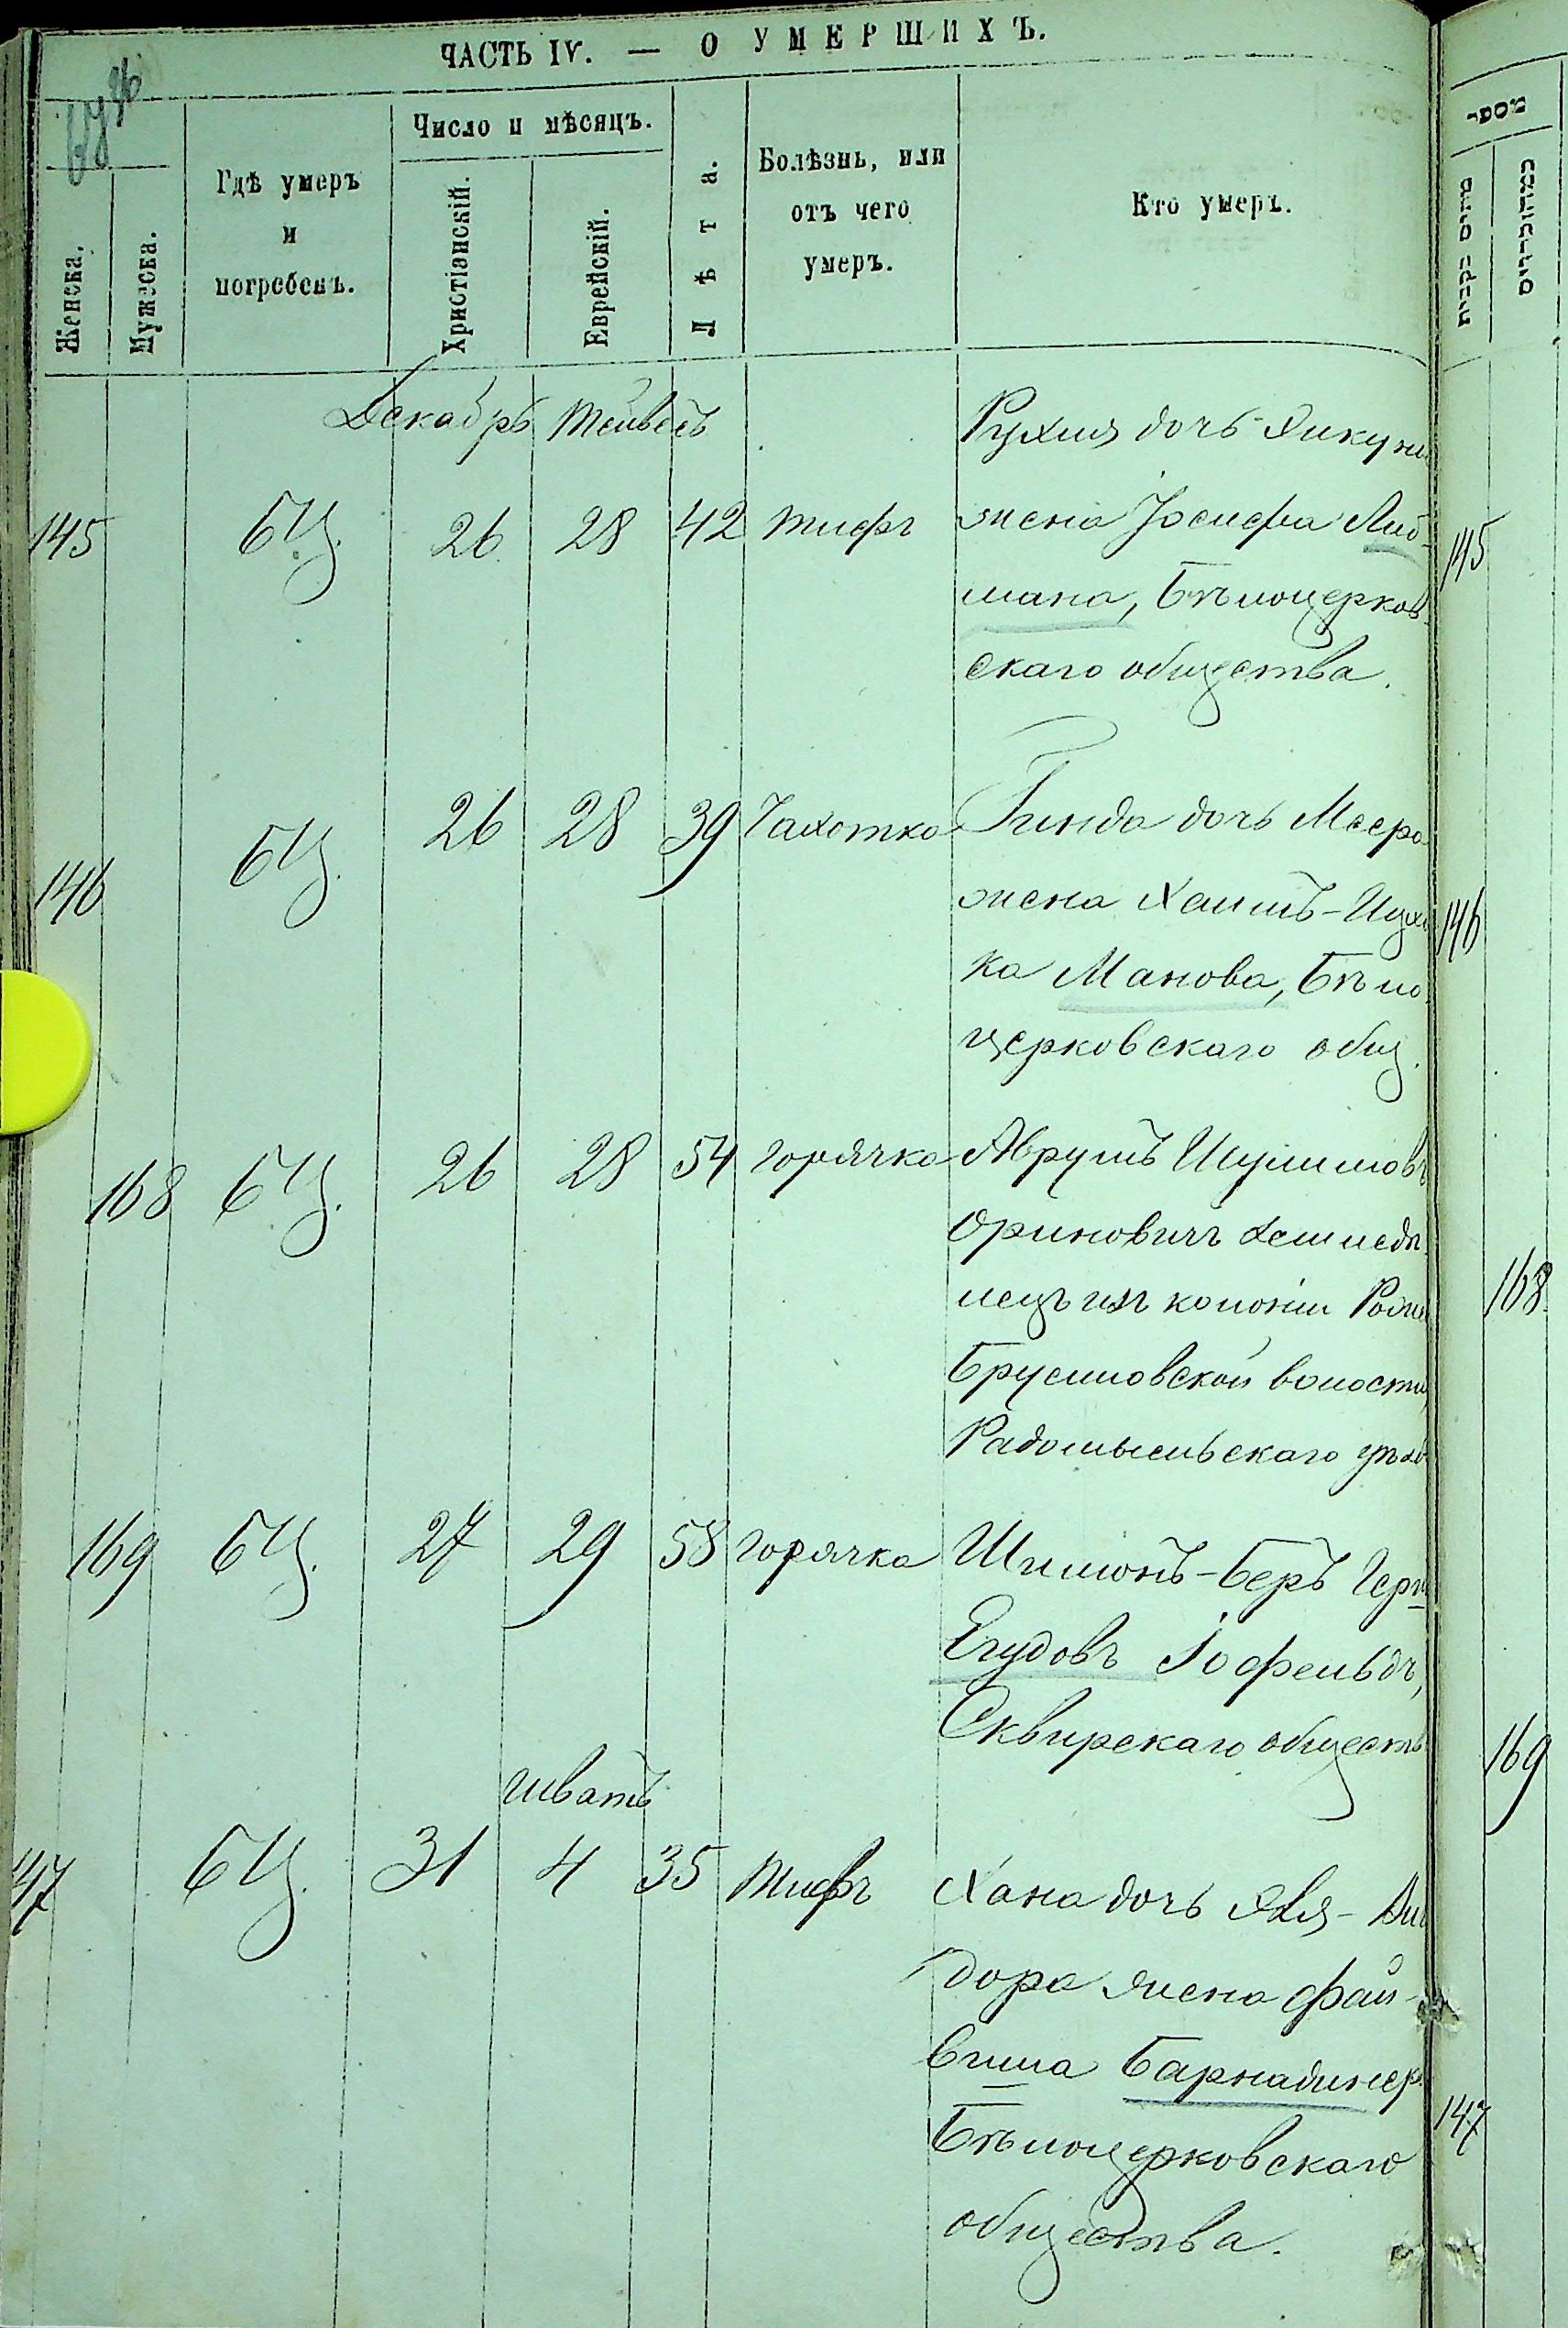 ЧАСТЬ IV. — О УМЕРШИХЪ.
96
Женска.
Мужеска.
Гдѣ умеръ
и
погребенъ.
Число и мѣсяцъ.
Христіанскій.
Еврейскій.
Лѣта.
Болѣзнь, или
отъ чего
умеръ.
Кто умеръ.
Декабрь Тейвесъ
Рухля дочь
145 БЦ. 26 28 42 тифъ жена Іосифа Либ- 145
мана, Бѣлоцерков-
скаго общества.
146 БЦ. 26 28 39 Чахотка Гинда дочь Меера
жена Хаимъ-Ицх 146
ка Манова, Бѣло
церковскаго общ.
168 БЦ. 26 28 54 горячка Аврумъ
Ориновичъ земледѣ
лецъ изъ колоніи 168
Брусиловской волости,
Радомысльскаго уѣзд
169 БЦ. 27 29 58 горячка Шимонъ-Беръ Герш
Егудовъ Іофельдъ,
Сквирскаго обществ 169
шватъ
147 БЦ. 31 4 35 тифъ Хана дочь
дора жена Фай-
виша Барнадинер
Бѣлоцерковскаго 147
общества.